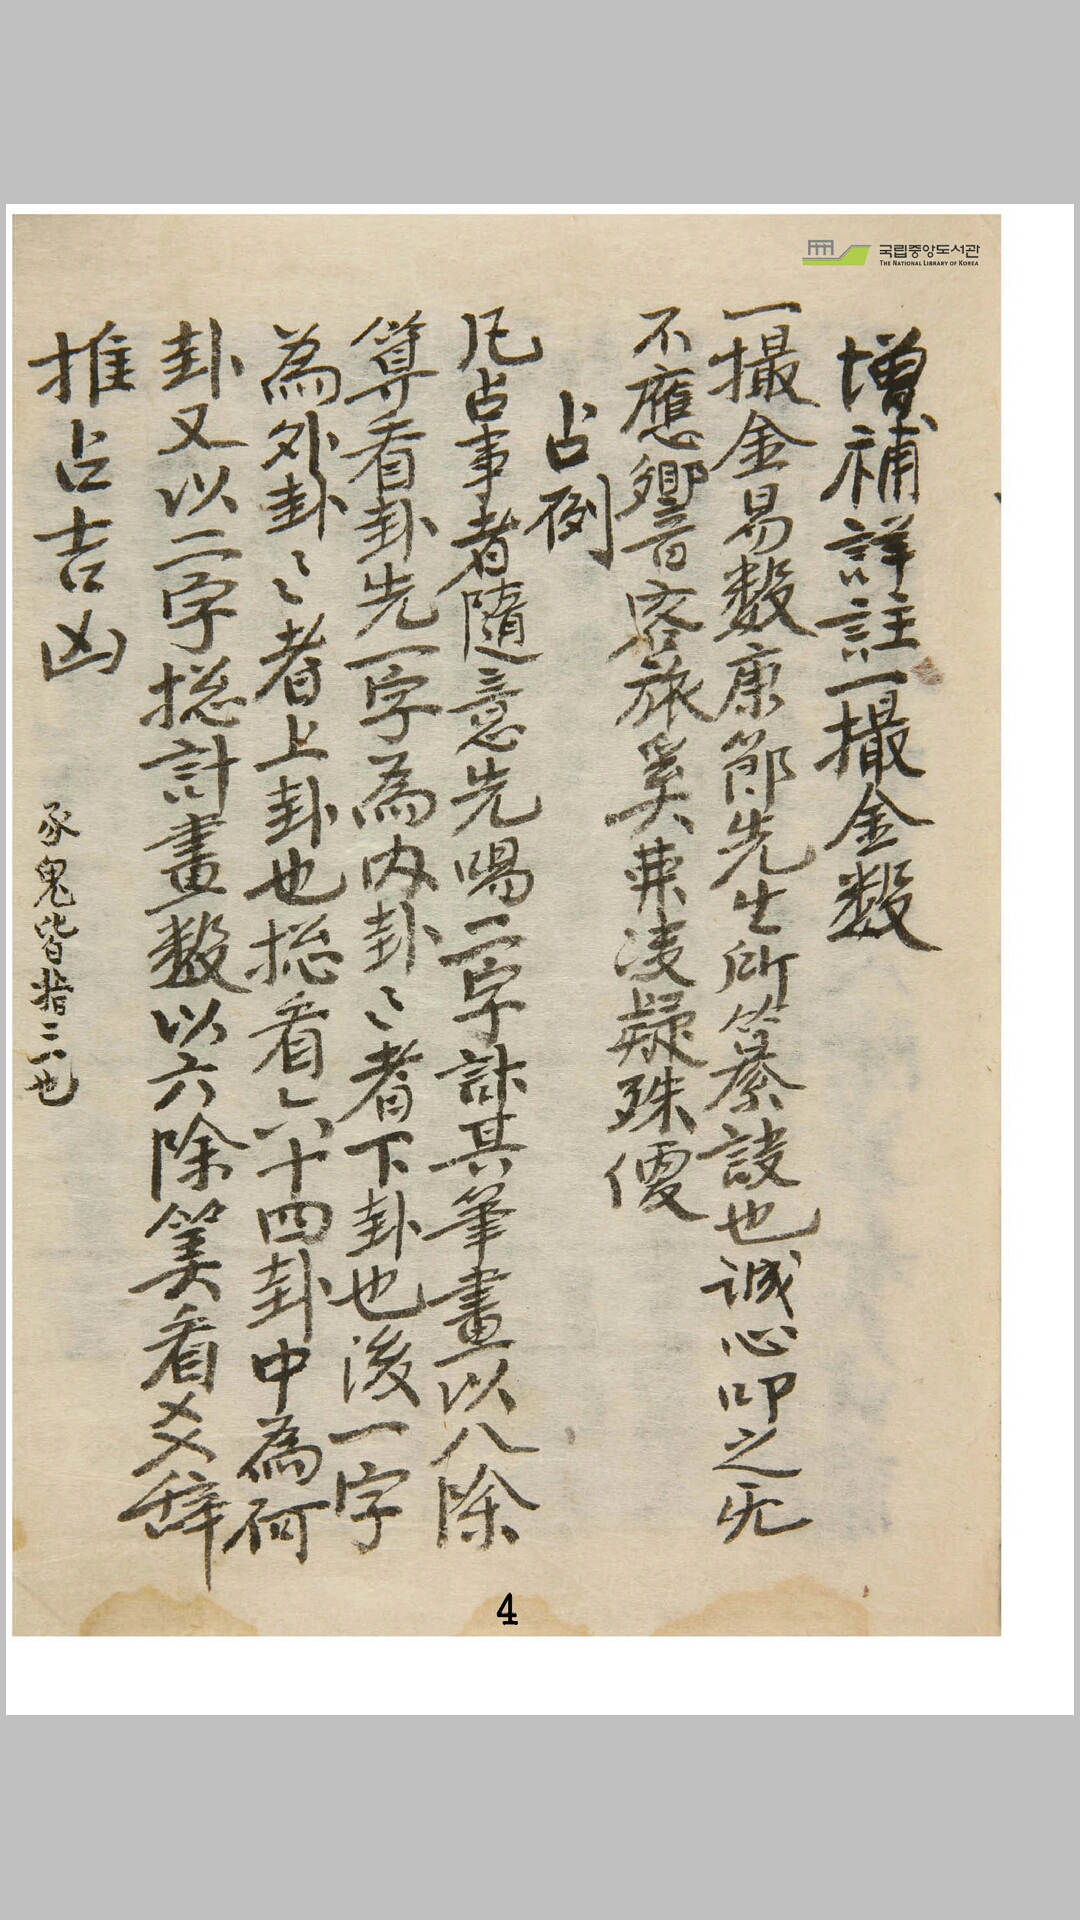 국립중앙도서관
THE NATIONAL LIBRARY OF KOREA
增補詳註一撮金数
一撮金易数康節先生所纂設也誠心叩之无
不應響客旅奚弗决疑殊
占例
凡占事者隨意先唱二字計其筆畫以八除
算看卦先一字為內卦〻者下卦也後一字
為外卦〻者上卦也摠看六十四卦中為何
卦又以二字摠計畫数以六除筭看爻辞
推占吉凶
豕鬼皆指二六也
4